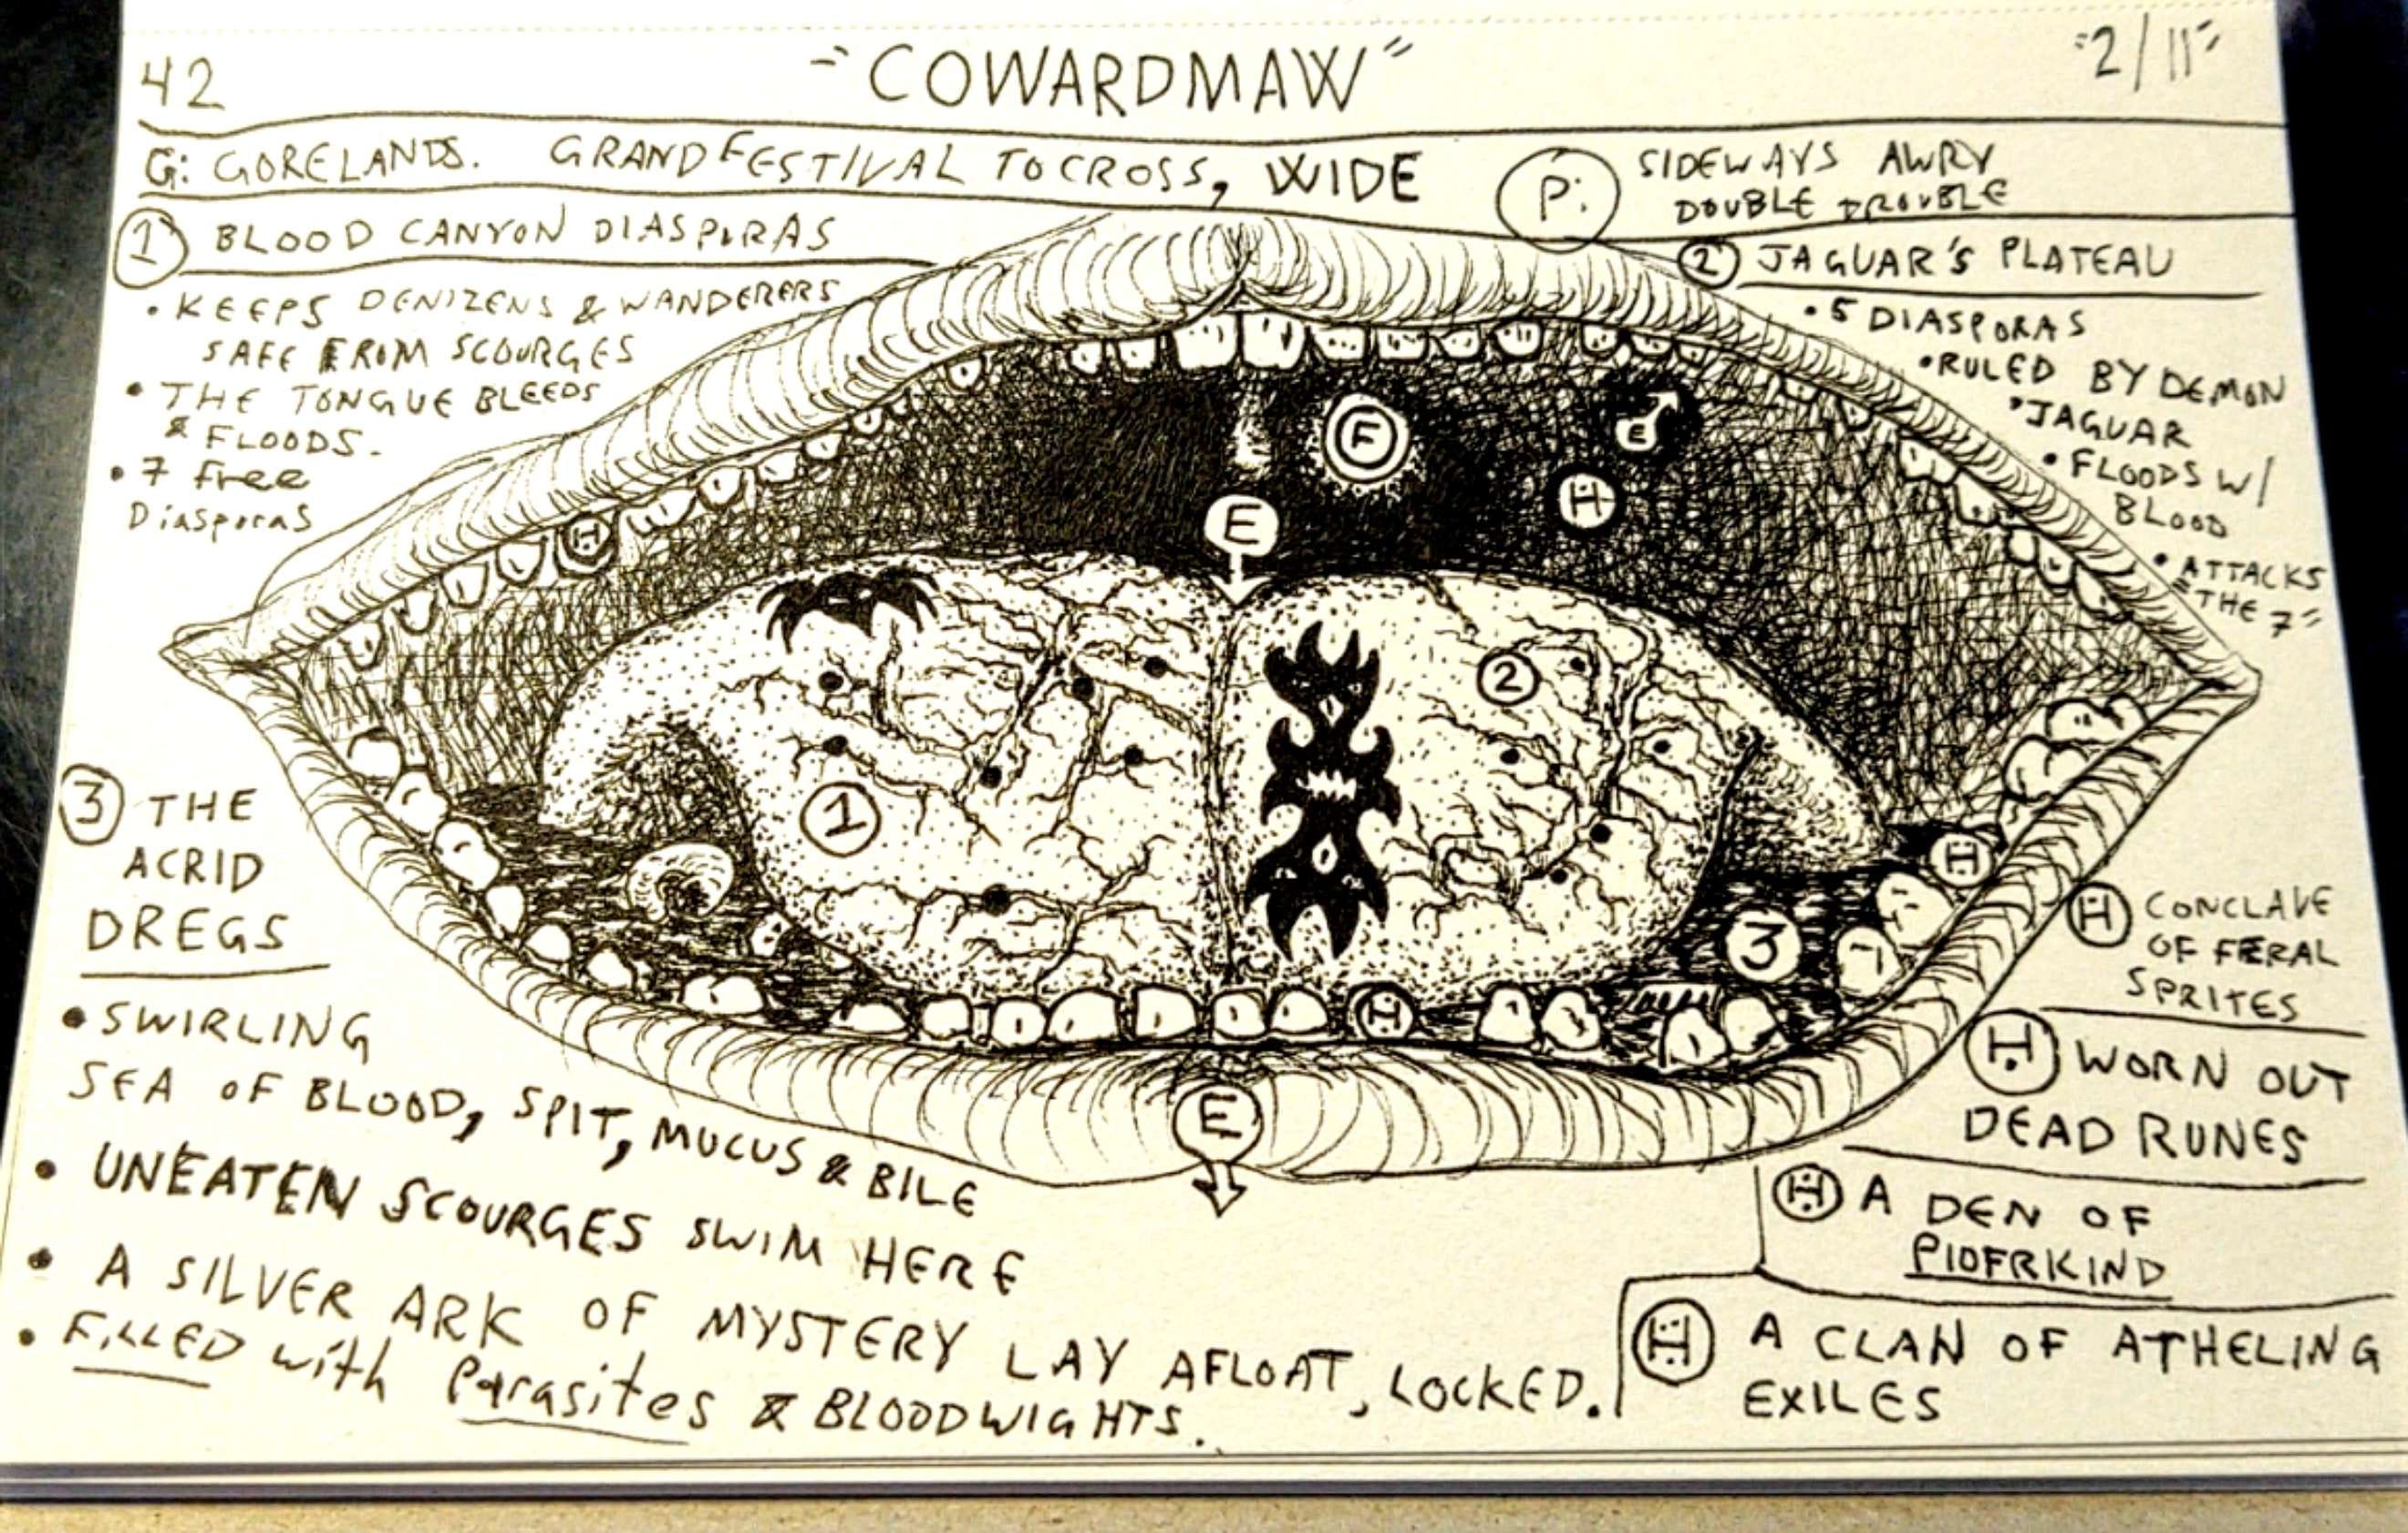 42
"COWARDMAW"
"2/11"
G: GORELANDS. GRAND FESTIVAL TO CROSS, WIDE
P: SIDEWAYS AWRY
DOUBLE DROUBLE
1 BLOOD CANYON DIASPORAS
• KEEPS DENIZENS & WANDERERS
SAFE FROM SCOURGES
• THE TONGUE BLEEDS
& FLOODS.
• 7 free
Diasporas
2 JAGUAR'S PLATEAU
• 5 DIASPORAS
• RULED BY DEMON
• JAGUAR
• FLOODS W/
BLOOD
• ATTACKS
"THE 7"
F
E
H
E
H
2
1
3
H
H
E
3 THE
ACRID
DREGS
• SWIRLING
SEA OF BLOOD, SPIT, MUCUS & BILE
• UNEATEN SCOURGES SWIM HERE
• A SILVER ARK OF MYSTERY LAY AFLOAT, LOCKED.
• FILLED with Parasites & BLOODWIGHTS.
H CONCLAVE
OF FERAL
SPRITES
H WORN OUT
DEAD RUNES
H A DEN OF
PIOFRKIND
H A CLAN OF ATHELING
EXILES